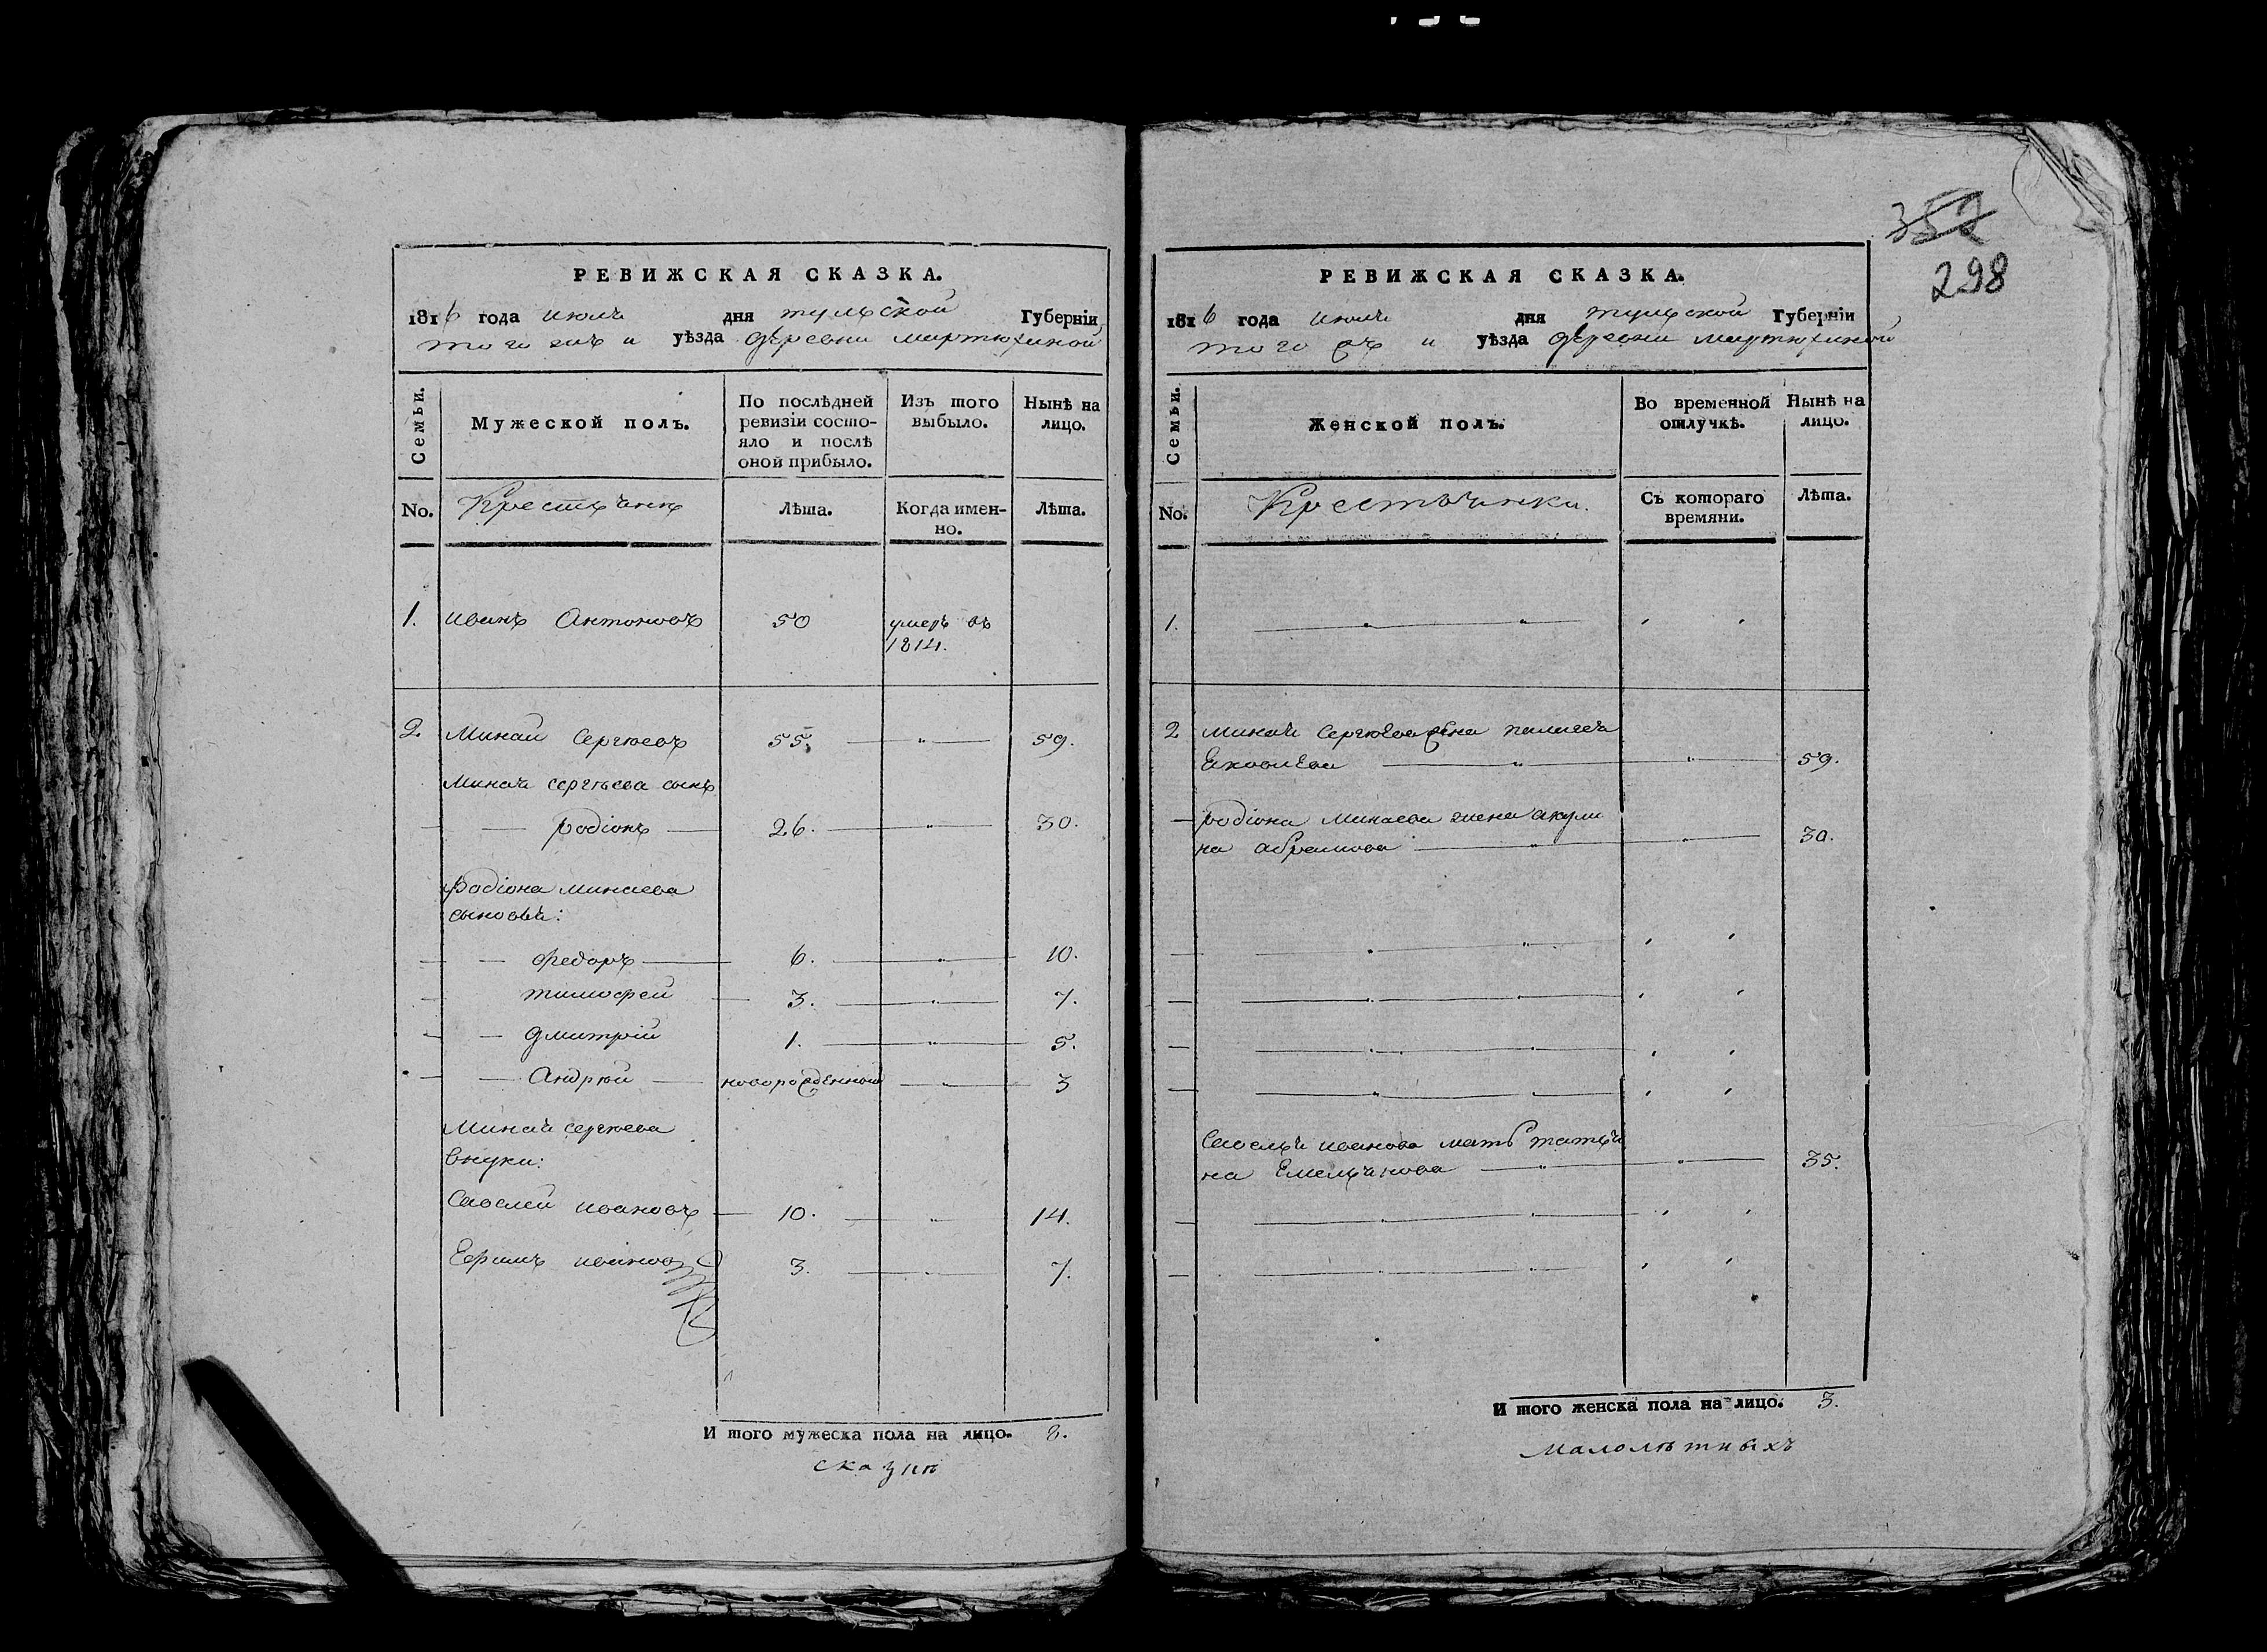 РЕВИЖСКАЯ СКАЗКА.
1816 года июля дня тульской Губерніи
того жъ и уѣзда деревни мартюхиной
Семьи.
Мужеской полъ.
По послѣдней ревизіи состо-
яло и послѣ
оной прибыло.
Изъ того
выбыло.
Нынѣ на
лицо.
No.
Крестьяне
Лѣта.
Когда имен-
но.
Лѣта.
1. иванъ Антоновъ 50 умеръ въ
1814.
2 Минай Сергѣевъ 55. — " — 59.
Миная сергѣева сынъ
— — родіонъ — 26. — " — 30.
родіона минаева
сыновья:
— — федоръ — 6. — " — 10.
— тимофей — 3. — " — 7.
— — дмитрій 1. — " — 5.
— — Андрѣй — новорожденной — " — 3
Миная сергѣева
внуки:
Савелей ивановъ — 10. — " — 14.
Ефимъ ивановъ 3. — " — 7.
И того мужеска пола на лицо. 8.
сказкѣ
352
298
РЕВИЖСКАЯ СКАЗКА.
1816 года июля дня тульской Губерніи
того жъ и уѣзда деревни мартюхиной
Семьи.
Женской полъ.
Во временной
отлучкѣ.
Нынѣ на
лицо.
No.
Крестьянки.
Съ котораго
времяни.
Лѣта.
1. — " — " — ' '
2 миная Сергѣева жена палагея
Яковлева — " — " — 59.
— родіона минаева жена акули
на абрамова — " — " — 30.
— — " — " — ' '
— — " — " — ' '
— — " — " — ' '
— — " — " — ' '
Савелья иванова мать татья
на Емельянова — " — " — 35.
— — " — " — ' '
— — " — " — ' '
И того женска пола на лицо. 3.
малолѣтныхъ